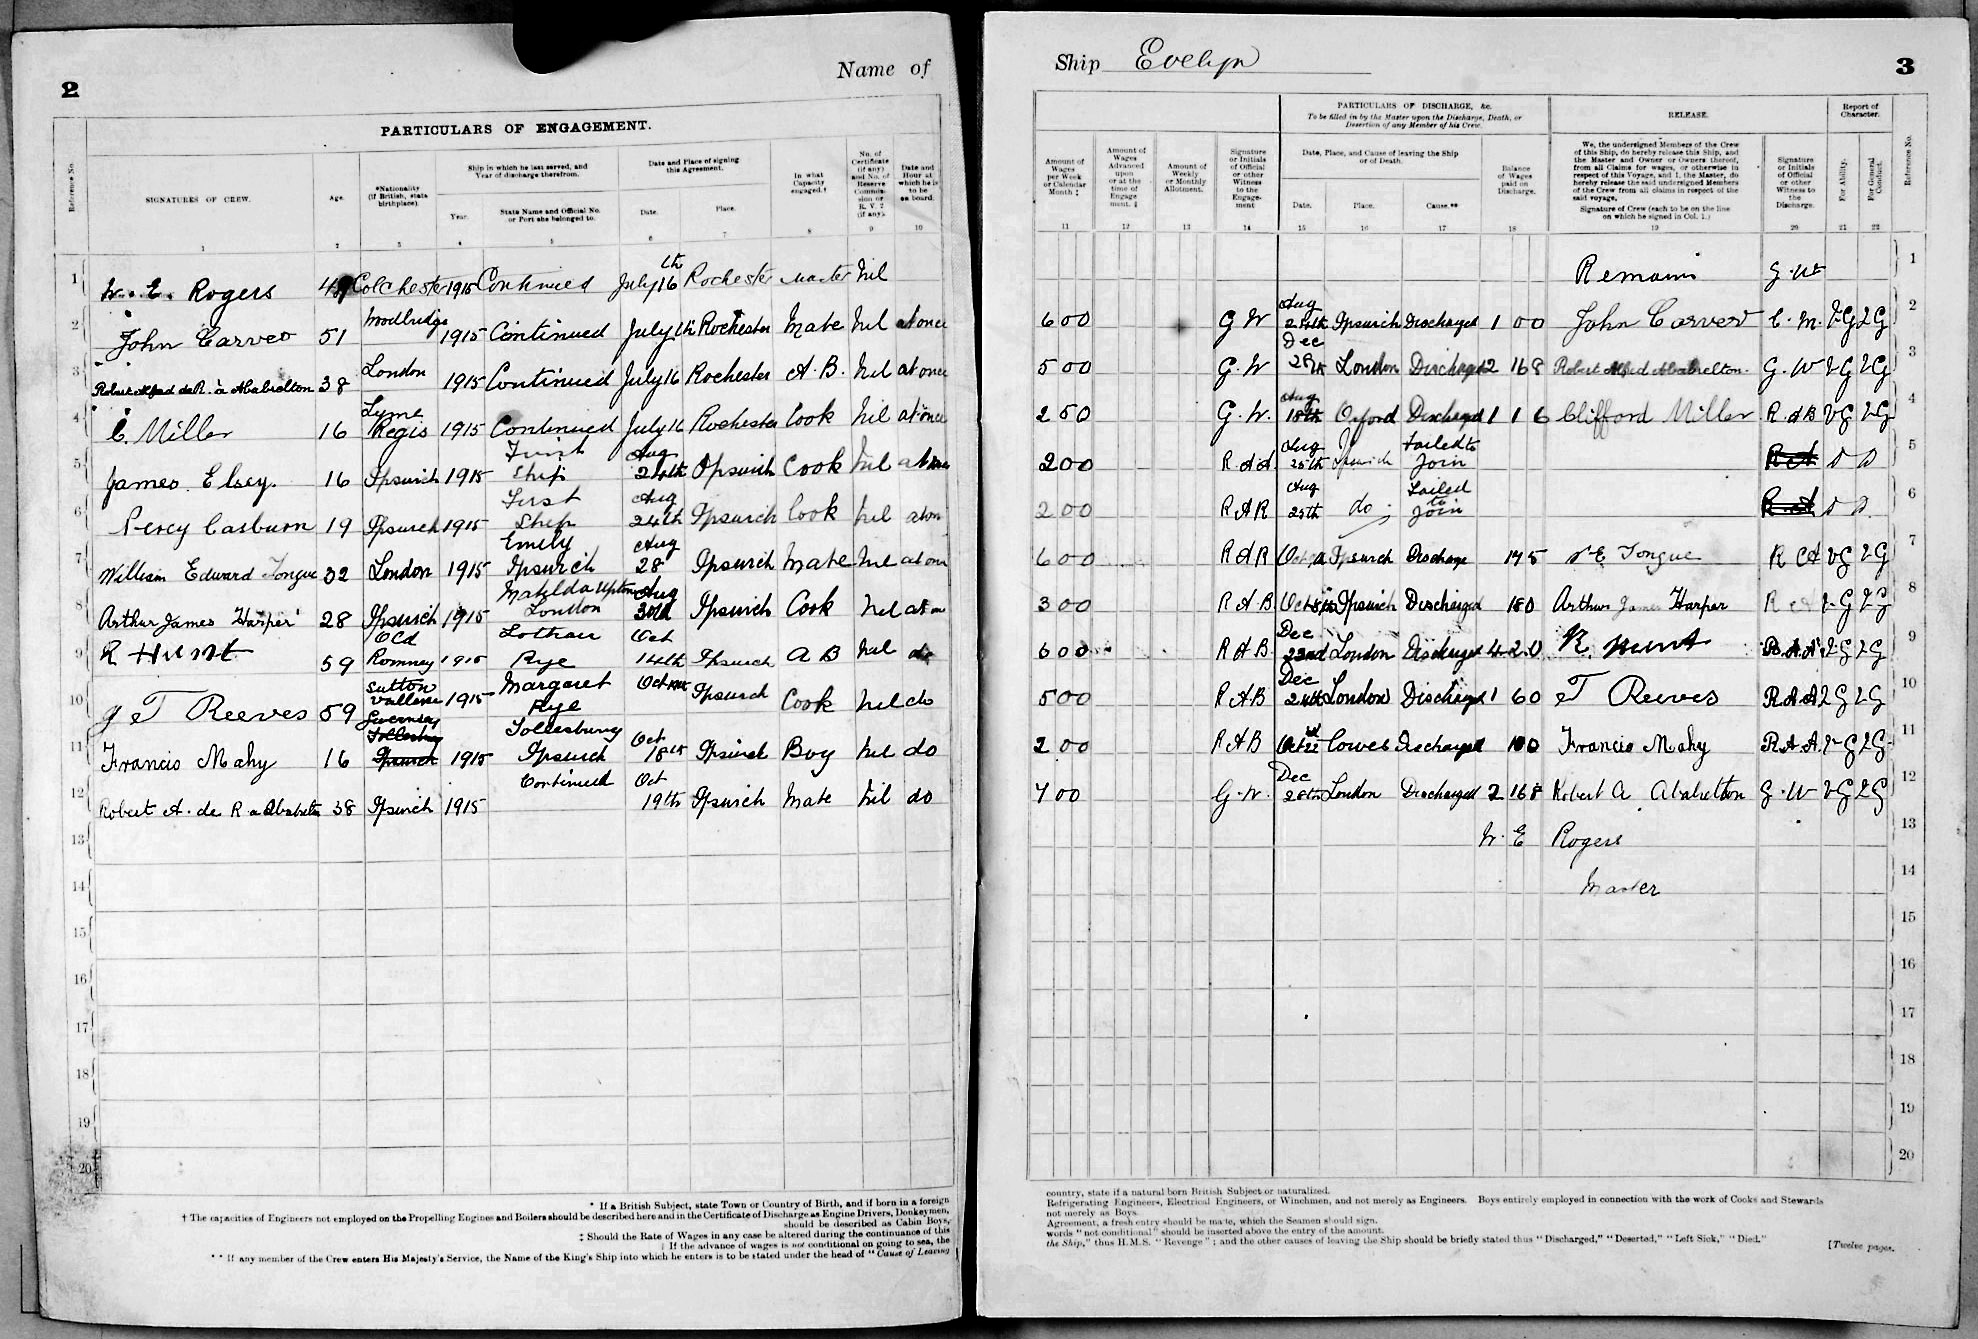 2
Name of
PARTICULARS OF ENGAGEMENT.
Reference No.
SIGNATURES OF CREW.
Age.
*Nationality (If British, state birthplace).
Ship in which he last served, and Year of discharge therefrom.
Year.
State Name and Official No. or Port she belonged to.
Date and Place of signing this Agreement.
Date.
Place.
In what Capacity engaged.†
No. of Certificate (if any) and No. of Reserve Commission or R. V. 2 (if any).
Date and Hour at which he is to be on board.
1 2 3 4 5 6 7 8 9 10
1 W. E. Rogers Colchester 1915 Continued July 16th Rochester Master Nil
2 John Carver 51 Woodbridge 1915 Continued July 16 Rochester Mate Nil at once
3 Robert Alfred de R. à Ababrelton 38 London 1915 Continued July 16 Rochester A. B. Nil at once
4 C. Miller 16 Lyme Regis 1915 Continued July 16 Rochester Cook Nil at once
5 James Elsey. 16 Ipswich 1915 First Ship Aug 24th Ipswich Cook Nil at once
6 Percy Casburn 19 Ipswich 1915 First Ship Aug 24th Ipswich Cook Nil at on
7 William Edward Tongue 32 London 1915 Emily Ipswich Aug 28 Ipswich Mate Nil at once
8 Arthur James Harper 28 Ipswich 1915 Matilda Upton London Aug Ipswich Cook Nil at on
9 R Hunt 59 Old Romney 1915 Lothair Rye Oct 14th Ipswich A B Nil do
10 T Reeves 59 Sutton Vallence 1915 Margaret Rye Oct Ipswich Cook Nil do
11 Francis Mahy 16 Guernsey Tollesbury Ipswich 1915 Tollesbury Ipswich Oct 18th Ipswich Boy Nil do
12 Robert A. de R a Ababrelton 38 Ipswich 1915 Continued Oct 19th Ipswich Mate Nil do
13
14
15
16
17
18
19
20
* If a British Subject, state Town or Country of Birth, and if born in a foreign
† The capacities of Engineers not employed on the Propelling Engines and Boilers should be described here and in the Certificate of Discharge as Engine Drivers, Donkeymen,
should be described as Cabin Boys,
‡ Should the Rate of Wages in any case be altered during the continuance of this
| If the advance of wages is not conditional on going to sea, the
** If any member of the Crew enters His Majesty's Service, the Name of the King's Ship into which he enters is to be stated under the head of "Cause of Leaving
Ship Evelyn
3
Amount of Wages per Week or Calendar Month ‡
Amount of Wages Advanced upon or at the time of Engagement. ‡
Amount of Weekly or Monthly Allotment.
Signature or Initials of Official or other Witness to the Engagement
PARTICULARS OF DISCHARGE, &c.
To be filled in by the Master upon the Discharge, Death, or Desertion of any Member of his Crew.
Date, Place, and Cause of leaving the Ship or of Death.
Date.
Place.
Cause.**
Balance of Wages paid on Discharge.
RELEASE.
We, the undersigned Members of the Crew of this Ship, do hereby release this Ship, and the Master and Owner or Owners thereof, from all Claims for wages, or otherwise in respect of this Voyage, and I, the Master, do hereby release the said undersigned Members of the Crew from all claims in respect of the said voyage.
Signature of Crew (each to be on the line on which he signed in Col. 1.)
Signature or Initials of Official or other Witness to the Discharge.
Report of Character.
For Ability.
For General Conduct.
Reference No.
11 12 13 14 15 16 17 18 19 20 21 22
Remains G. W 1
6 0 0 G W Aug 24th Ipswich Discharged 1 0 0 John Carver C. M. VG VG 2
5 0 0 G. W Dec London Discharged 2 16 8 Robert Alfred Ababrelton. G. W VG VG 3
2 5 0 G. W. Aug 18th Orford Discharged 1 1 6 Clifford Miller R A B VG VG 4
2 0 0 Aug 25th Ipswich Failed to Join R A 5
2 0 0 R A R Aug 25th do Failed to Join R A 6
6 0 0 R A R Oct Ipswich Discharge 17 5 W E Tongue VG VG 7
3 0 0 R A B Oct Ipswich Discharged 18 0 Arthur James Harper VG VG 8
6 0 0 R A B Dec 22nd London Discharged 4 2 0 R. Hunt VG VG 9
5 0 0 R A B Dec 24th London Discharged 1 6 0 T Reeves VG VG 10
2 0 0 R A B Oct 22 Cowes Discharged 10 0 Francis Mahy R A A. VG VG 11
7 0 0 G. W. Dec 28th London Discharged 2 16 8 Robert A Ababrelton G. W VG VG 12
W. E Rogers 13
Master 14
15
16
17
18
19
20
country, state if a natural born British Subject or naturalized.
Refrigerating Engineers, Electrical Engineers, or Winchmen, and not merely as Engineers. Boys entirely employed in connection with the work of Cooks and Stewards
not merely as Boys.
Agreement, a fresh entry should be made, which the Seamen should sign.
words "not conditional" should be inserted above the entry of the amount.
the Ship," thus H.M.S. "Revenge"; and the other causes of leaving the Ship should be briefly stated thus "Discharged," "Deserted," "Left Sick," "Died."
[Twelve pages.